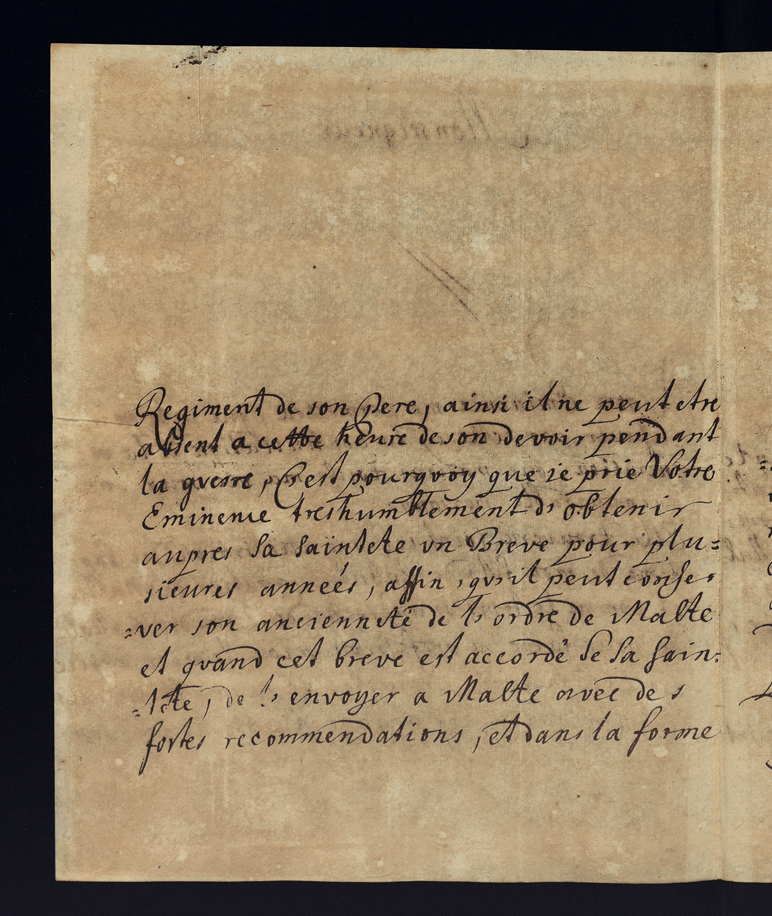 Regiment de son Pere, ainsi il ne peut etre
absent a cette heure de son devoir pendant
la gverre, C'est pourqvoy que je prie Votre
Eminence treshumblement d'obtenir
aupres Sa Saintete vn Breve pour plu=
sieures anneés, affin qv'il peut conser
=ver son ancienneté de l'ordre de Malte
et qvand cet breve est accordé de Sa Sain:
=tete, de l'envoyer a Malte avec des
fortes recommendations, et dans la forme